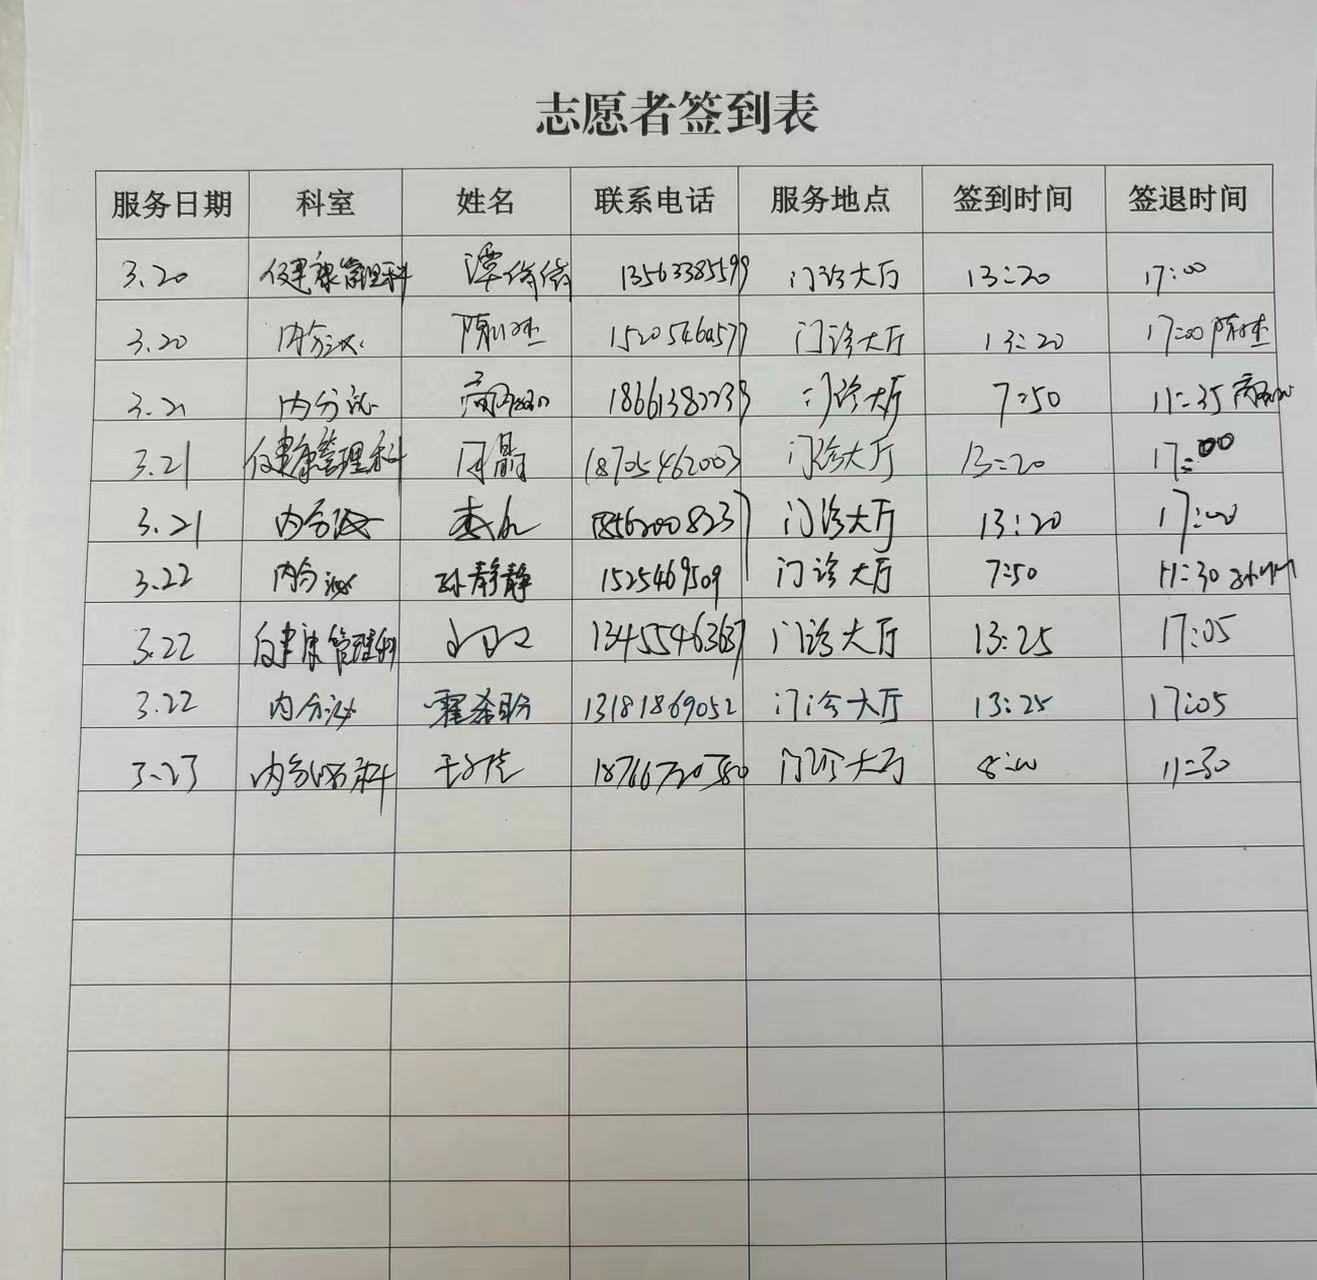 志愿者签到表
服务日期 科室 姓名 联系电话 服务地点 签到时间 签退时间
3.20 健康管理科 谭 13563385599 门诊大厅 13:20 17:00
3.20 内分泌 门诊大厅 13:20 17:00
3.21 内分泌 门诊大厅 7:50 11:35
3.21 健康管理科 闫晶 18705462003 门诊大厅 13:20 17:00
3.21 内分泌 门诊大厅 13:20 17:00
3.22 内分泌 孙静静 1525469509 门诊大厅 7:50 11:30
3.22 健康管理科 13455463637 门诊大厅 13:25 17:05
3.22 内分泌 13181869052 门诊大厅 13:25 17:05
3.23 内分泌科 18766720580 门诊大厅 8:00 11:30